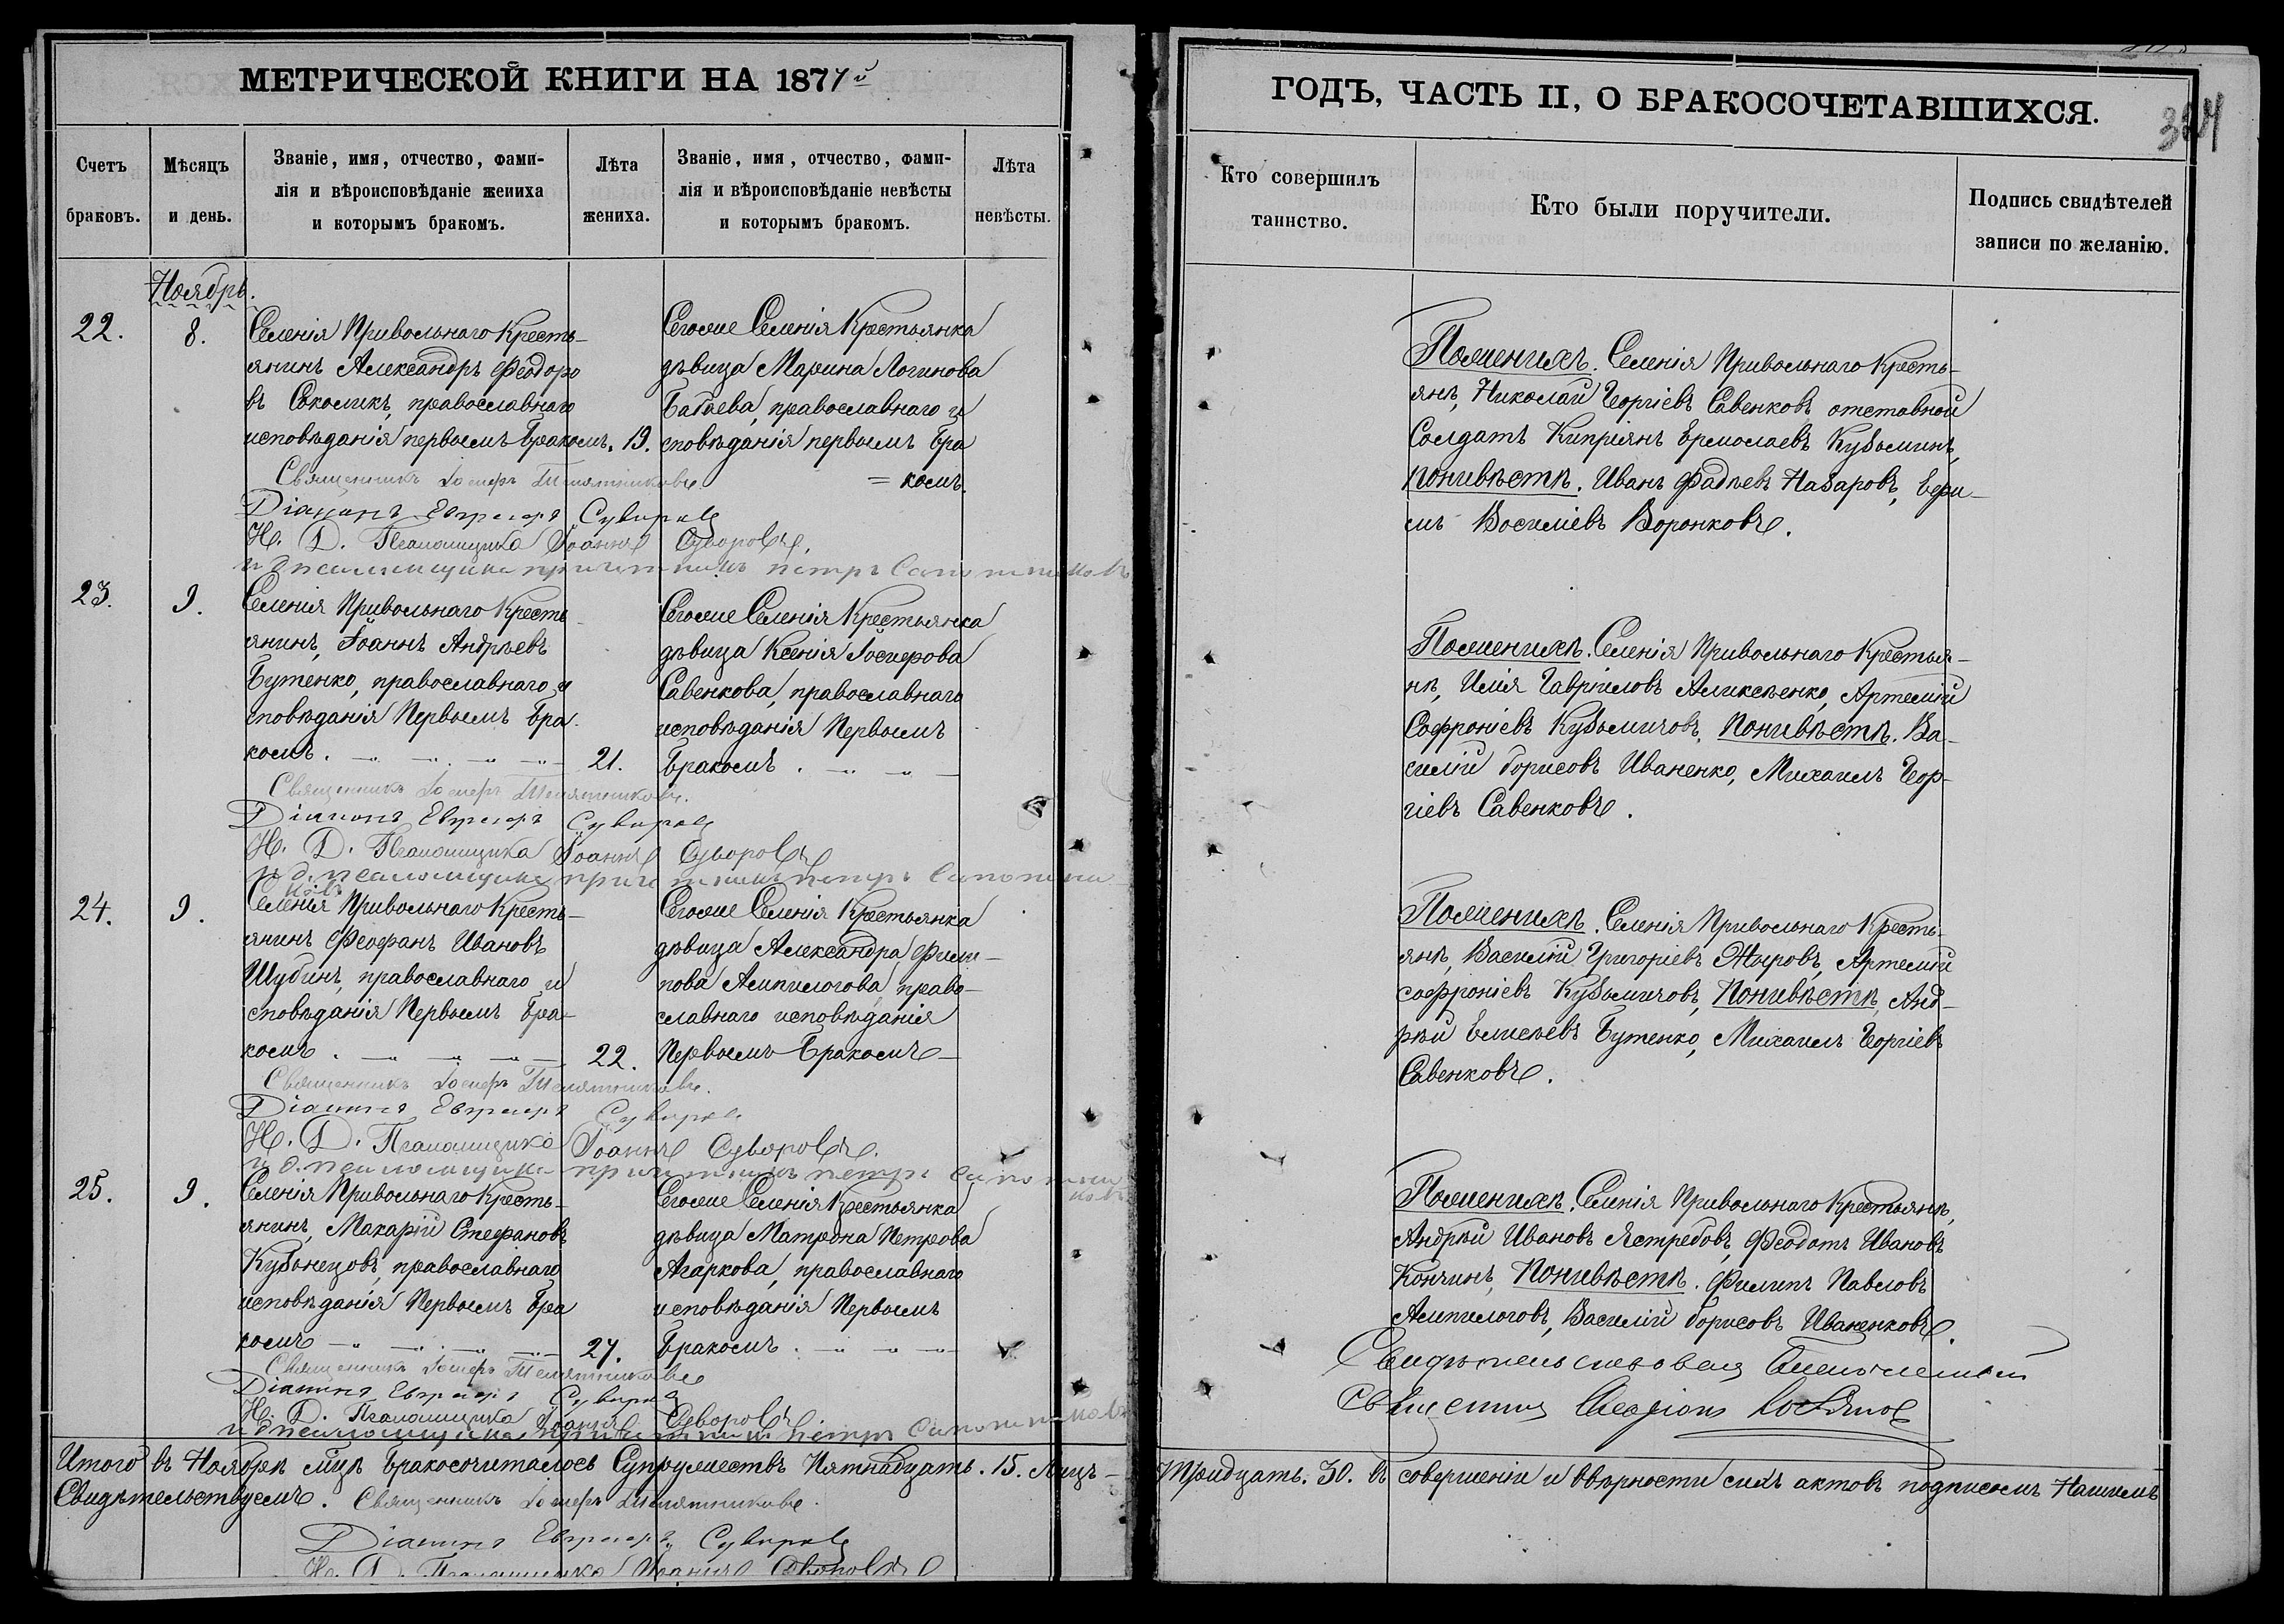 МЕТРИЧЕСКОЙ КНИГИ НА 1877й
Счетъ браковъ.
Мѣсяцъ и день.
Званіе, имя, отчество, фами-
лія и вѣроисповѣданіе жениха
и которымъ бракомъ.
Лѣта
жениха.
Званіе, имя, отчество, фами-
лія и вѣроисповѣданіе невѣсты
и которымъ бракомъ.
Лѣта
невѣсты.
Ноябрь.
22.
8.
Селенія Привольнаго Кресть-
янинъ Александръ Феодоро
въ Соколикъ, православнаго
исповѣданія первымъ бракомъ. 19.
Тогоже Селенія Крестьянка
дѣвица Марина Логинова
Бабаева, православнаго и
сповѣданія первымъ бра
= комъ.
Священникъ Іосифъ
Діаконъ Суворовъ
И. Д. Псаломщика Іоаннъ Суворовъ.
и д псаломщика причетникъ петръ Сапожниковъ
23.
9.
Селенія Привольнаго Кресть-
янинъ, Іоаннъ Андреевъ
Бутенко, православнаго и
сповѣданія Первымъ бра
комъ. 21.
Тогоже Селенія Крестьянка
дѣвица Ксенія Іосифова
Савенкова, православнаго
исповѣданія Первымъ
бракомъ.
Священникъ Іосифъ
Діаконъ Суворовъ
И. Д. Псаломщика Іоаннъ Суворовъ
и д. псаломщика причетникъ петръ Сапожни
ковъ
24.
9.
Селенія Привольнаго Кресть-
янинъ Феофанъ Ивановъ
Шубинъ, православнаго и
сповѣданія Первымъ бра-
комъ. 22.
Тогоже Селенія Крестьянка
дѣвица Александра Фили-
пова Алипилогова право-
славнаго исповѣданія
Первымъ Бракомъ
Священникъ Іосифъ
Діаконъ Суворовъ
И. Д. Псаломщика Іоаннъ Суворовъ.
и д. псаломщика причетникъ петръ Сапожни
ковъ
25.
9.
Селенія Привольнаго Кресть-
янинъ, Макарій Стефановъ
Кузьнецовъ, православнаго
исповѣданія Первымъ бра
комъ 27.
Тогоже Селенія Крестьянка
дѣвица Матрона Петрова
Агаркова, православнаго
исповѣданія Первымъ
бракомъ.
Священникъ Іосифъ
Діаконъ Суворовъ
И. Д. Псаломщика Іоаннъ Суворовъ
и д псаломщика причетникъ петръ Сапожниковъ
Итого въ Ноябрѣ мцѣ бракосочиталось Супружествъ Пятнадцать. 15. Лицъ-
Свидѣтельствуемъ. Священникъ Іосифъ
Діаконъ Суворовъ
И. Д. Псаломщика Іоаннъ Суворовъ
ГОДЪ, ЧАСТЬ II, О БРАКОСОЧЕТАВШИХСЯ.
Кто совершилъ
таинство.
Кто были поручители.
Подпись свидѣтелей
записи по желанію.
Поженихѣ. Селенія Привольнаго Кресть-
янѣ, Николай Георгіевъ Савенковъ отставной
Солдатъ Кипріянъ Ермолаевъ Кузьминъ,
Поневѣстѣ. Иванъ Фадѣевъ Назаровъ, Ефи-
мъ Василіевъ Воронковъ.
Поженихѣ. Селенія Привольнаго Крестья-
нѣ, Илія Гавріиловъ Аликсѣенко, Артемій
Софроніевъ Кузьмичовъ, Поневѣстѣ. Ва-
силій борисовъ Иваненко, Михаилъ Геор-
гіевъ Савенковъ.
Поженихѣ. Селенія Привольнаго Кресть-
янѣ, Василій Григоріевъ Жыровъ, Артемій
софроніевъ Кузьмичовъ, Поневѣстѣ, Анд-
рѣй Елисѣевъ Бутенко, Михаилъ Георгіевъ
Савенковъ.
Поженихѣ. Селенія Привольнаго Крестьянѣ,
Андрѣй Ивановъ Ястребовъ, Феодотъ Ивановъ
Кончинъ, Поневѣстѣ. Филипъ Павловъ
Алипилоговъ, Василій борисовъ Иваненковъ.
Свидѣтельствовалъ Благочинный
Священникъ
Тридцать. 30. въ совершеніи и ввѣрности сихъ актовъ подписомъ Нашимъ